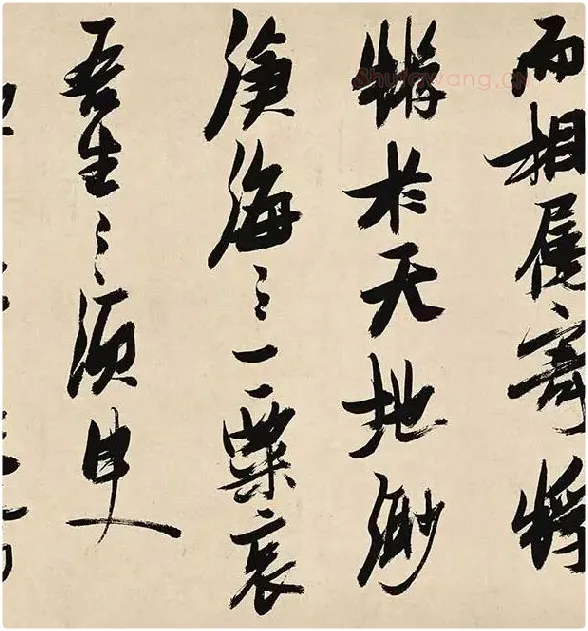 而相属寄蜉
蝣於天地渺
滄海之一粟哀
吾生之須臾
Shufawang.CN